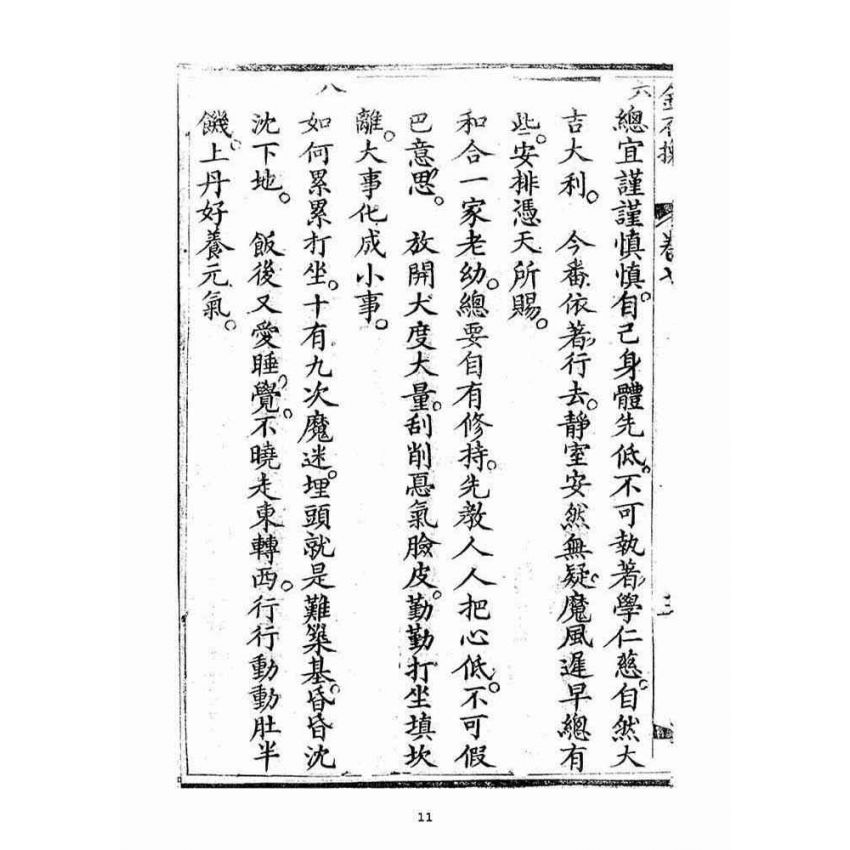 卷七
三
六
總宜謹謹慎慎。自己身體先低。不可執著學仁慈。自然大
吉大利。 今番依著行去。靜室安然無疑。魔風遲早總有
些。安排憑天所賜。
和合一家老幼。總要自有修持。先教人人把心低。不可假
巴意思。 放開大度大量。刮削惡氣臉皮。勤勤打坐填坎
離。大事化成小事。
八
如何累累打坐。十有九次魔迷。埋頭就是難築基。昏昏沈
沈下地。 飯後又愛睡覺。不曉走東轉西。行行動動肚半
饑。上丹好養元氣。
11